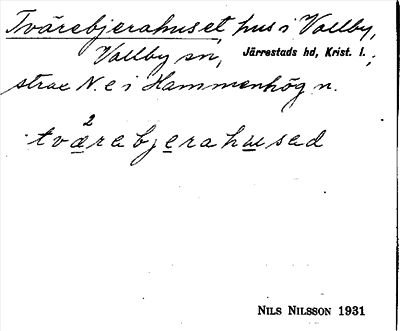 Tvärebjerahuset, hus i Vallby,
Vallby sn, Järrestads hd, Krist. l.;
strax N. e i Hammenhög n.
2
tvärabjerahused
NILS NILSSON 1931